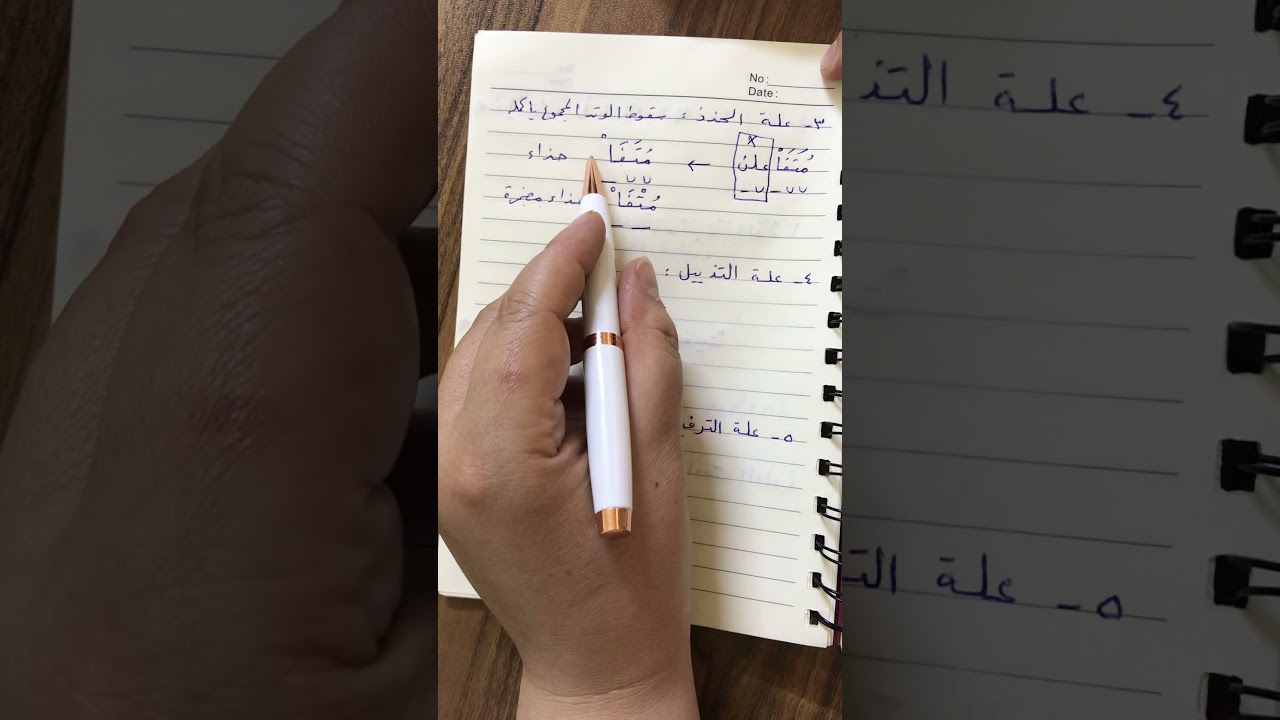 No:
Date:
٣- علة الحذذ : سقوط الوتد المجموع بأكمله
x
مُتَفَاْ علن ← مُتَفَاْ حذاء
مُتْفَاْ حذاء مضمرة
٤- علة التذييل :
٥- علة الترف
٤- علة التذ
٥- علة الت